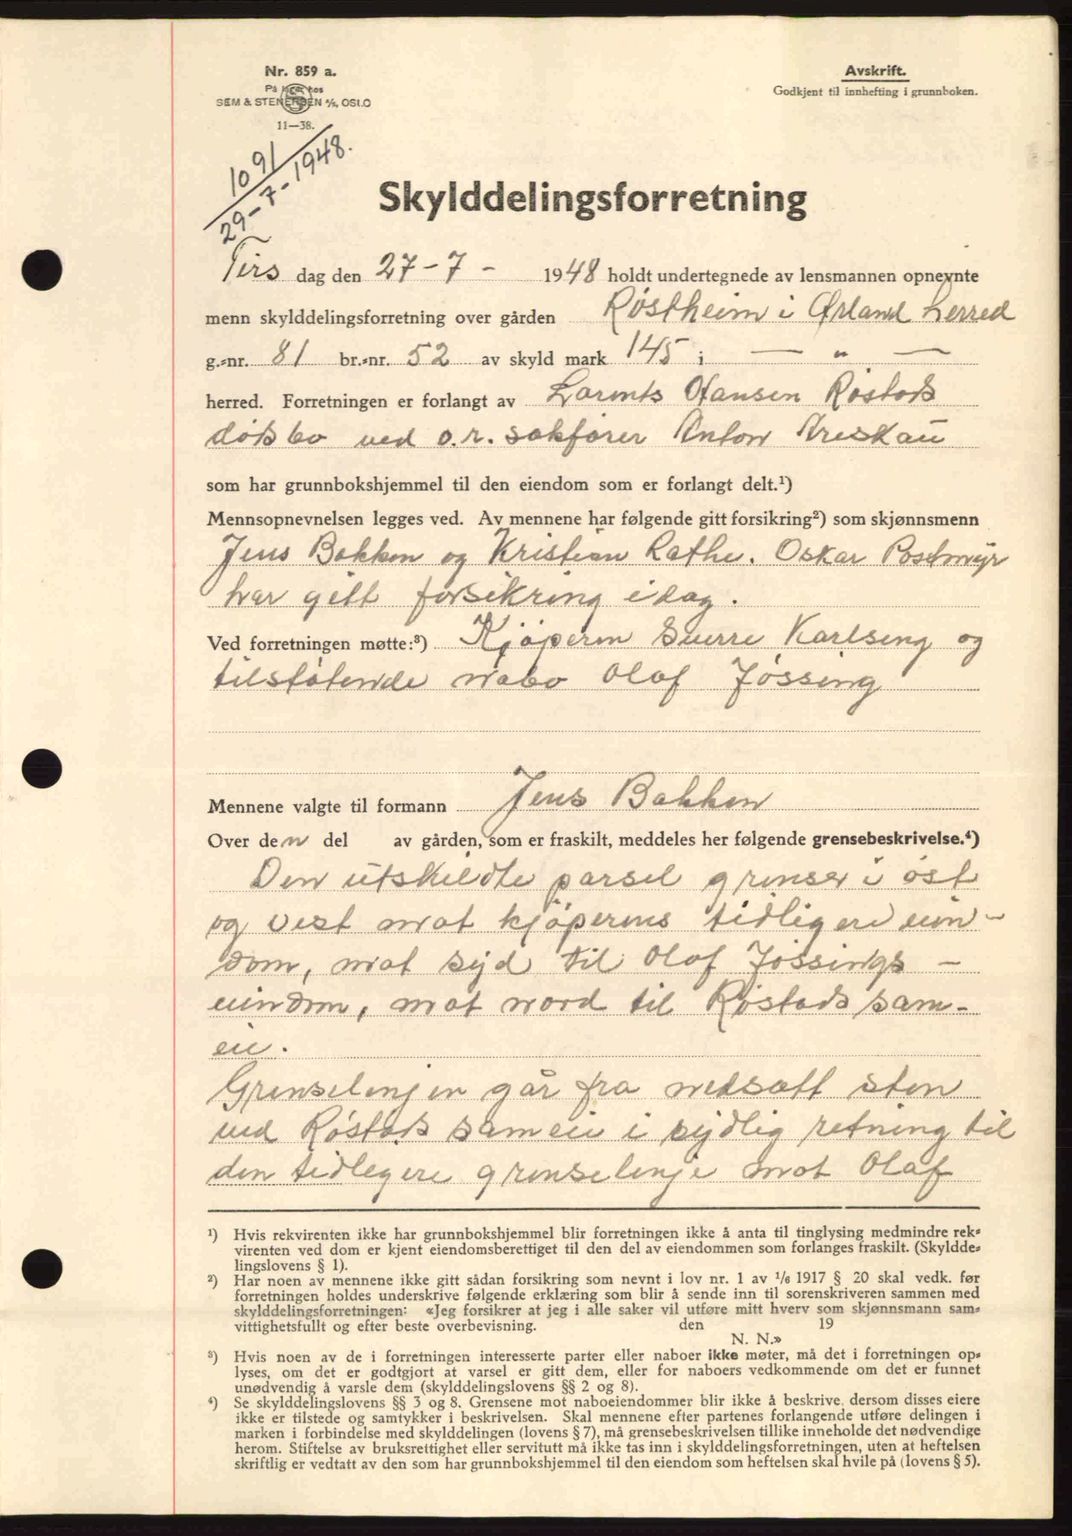 Nr. 859 a.
På lager hos
SEM & STENERSEN A/S, OSLO
11—38.
Avskrift.
Godkjent til innhefting i grunnboken.
1091
29-7-1948.
Skylddelingsforretning
Tirs dag den 27-7- 1948 holdt undertegnede av lensmannen opnevnte
menn skylddelingsforretning over gården Røstheim i Ørland herred
g.-nr. 81 br.-nr. 52 av skyld mark 1 45 i — " —
herred. Forretningen er forlangt av Larents Hansen Røstads
dødsbo ved o.r. sakfører Anton Kreskau
som har grunnbokshjemmel til den eiendom som er forlangt delt.¹)
Mennsopnevnelsen legges ved. Av mennene har følgende gitt forsikring²) som skjønnsmenn
Jens Bakken og Kristian Rathe. Oskar Postmyr
har gitt forsikring idag.
Ved forretningen møtte:³) Kjöperen Sverre Karlseng og
tilstøtende nabo Olaf Jøssing
Mennene valgte til formann Jens Bakken
Over den del av gården, som er fraskilt, meddeles her følgende grensebeskrivelse.⁴)
Den utskildte parsel grenser i øst
og vest mot kjöperens tidligere eien-
dom, mot syd til Olaf Jøssings -
eiendom, mot nord til Røstads sam-
eie.
Grenselinjen går fra nedsatt sten
ved Røstads sameie i sydlig retning til
den tidligere grenselinje mot Olaf
¹) Hvis rekvirenten ikke har grunnbokshjemmel blir forretningen ikke å anta til tinglysing medmindre rek-
virenten ved dom er kjent eiendomsberettiget til den del av eiendommen som forlanges fraskilt. (Skyldde-
lingslovens § 1).
²) Har noen av mennene ikke gitt sådan forsikring som nevnt i lov nr. 1 av 1/6 1917 § 20 skal vedk. før
forretningen holdes underskrive følgende erklæring som blir å sende inn til sorenskriveren sammen med
skylddelingsforretningen: «Jeg forsikrer at jeg i alle saker vil utføre mitt hverv som skjønnsmann sam-
vittighetsfullt og efter beste overbevisning. den 19
N. N.»
³) Hvis noen av de i forretningen interesserte parter eller naboer ikke møter, må det i forretningen op-
lyses, om det er godtgjort at varsel er gitt dem, eller for naboers vedkommende om det er funnet
unødvendig å varsle dem (skylddelingslovens §§ 2 og 8).
⁴) Se skylddelingslovens §§ 3 og 8. Grensene mot naboeiendommer blir ikke å beskrive, dersom disses eiere
ikke er tilstede og samtykker i beskrivelsen. Skal mennene efter partenes forlangende utføre delingen i
marken i forbindelse med skylddelingen (lovens § 7), må grensebeskrivelsen tillike inneholde det nødvendige
herom. Stiftelse av bruksrettighet eller servitutt må ikke tas inn i skylddelingsforretningen, uten at heftelsen
skriftlig er vedtatt av den som har grunnbokshjemmel til den eiendom som heftelsen skal hvile på (lovens § 5).